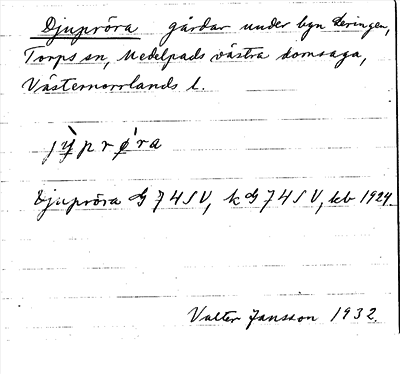 Djupröra gårdar under byn Leringen,
Torps sn, Medelpads västra domsaga,
Västernorrlands l.
jỳprǿra
Djupröra G 74 SV, k G 74 SV, kb 1924
Valter Jansson 1932